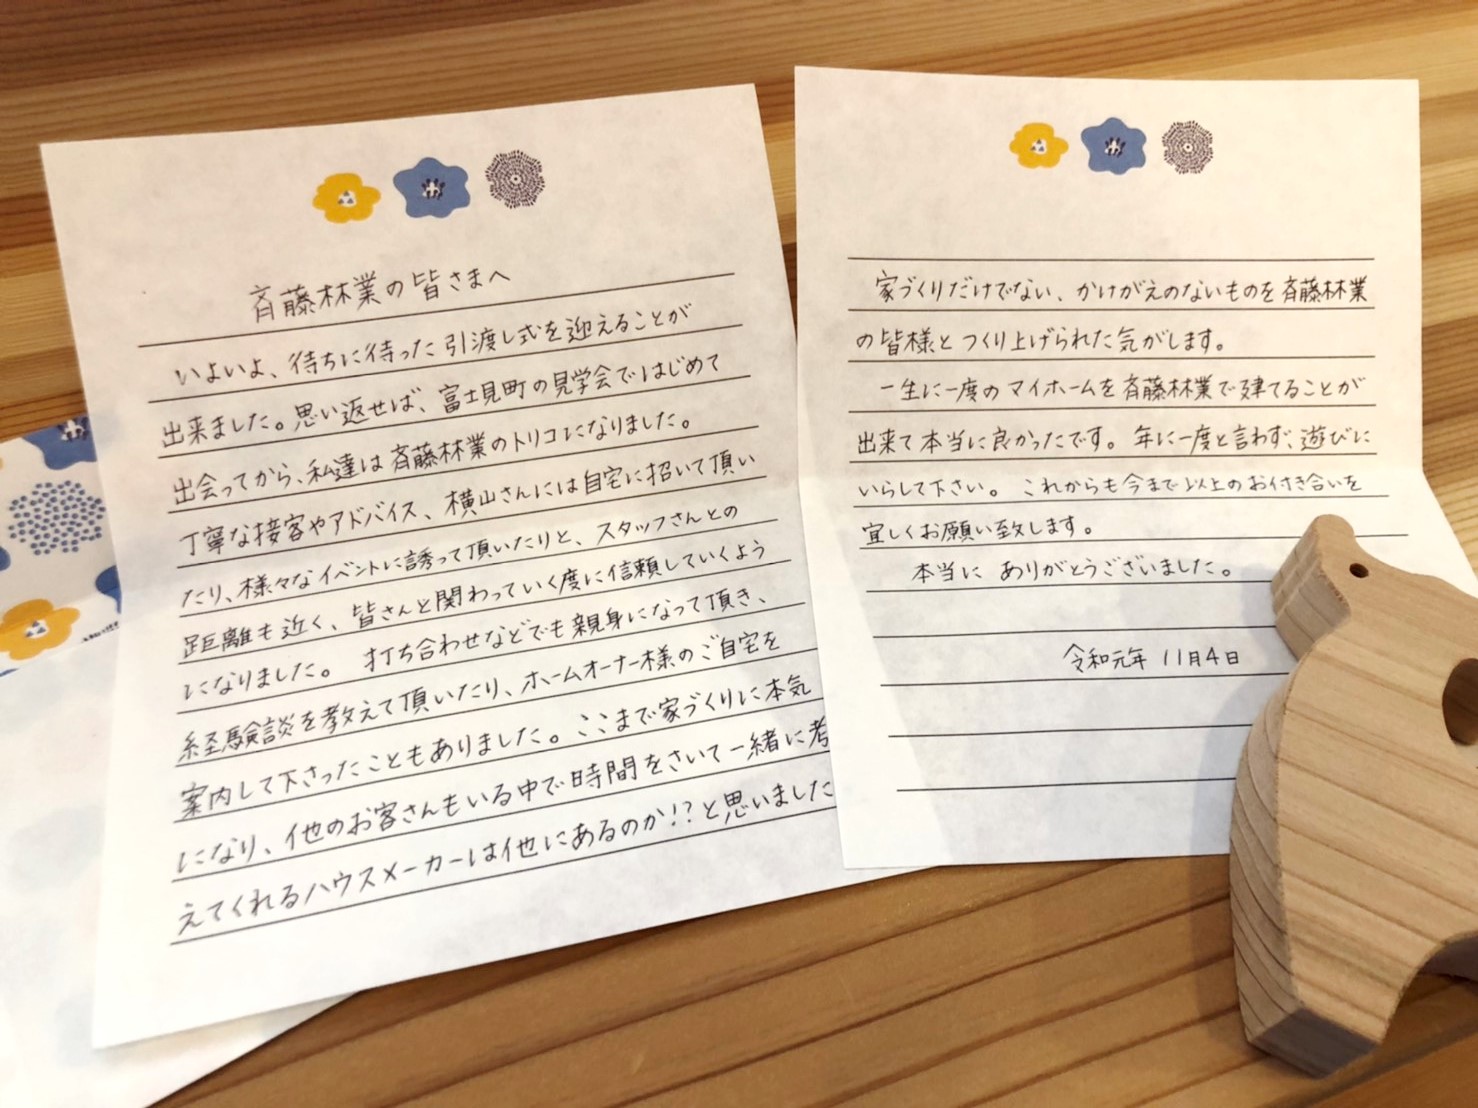 斉藤林業の皆さまへ
いよいよ、待ちに待った引渡し式を迎えることが
出来ました。思い返せば、富士見町の見学会ではじめて
出会ってから、私達は斉藤林業のトリコになりました。
丁寧な接客やアドバイス、横山さんには自宅に招いて頂い
たり、様々なイベントに誘って頂いたりと、スタッフさんとの
距離も近く、皆さんと関わっていく度に信頼していくよう
になりました。 打ち合わせなどでも親身になって頂き、
経験談を教えて頂いたり、ホームオーナー様のご自宅を
案内して下さったこともありました。ここまで家づくりに本気
になり、他のお客さんもいる中で時間をさいて一緒に考
えてくれるハウスメーカーは他にあるのか!?と思いました
家づくりだけでない、かけがえのないものを斉藤林業
の皆様とつくり上げられた気がします。
一生に一度のマイホームを斉藤林業で建てることが
出来て本当に良かったです。年に一度と言わず、遊びに
いらして下さい。 これからも今まで以上のお付き合いを
宜しくお願い致します。
本当に ありがとうございました。
令和元年 11月4日